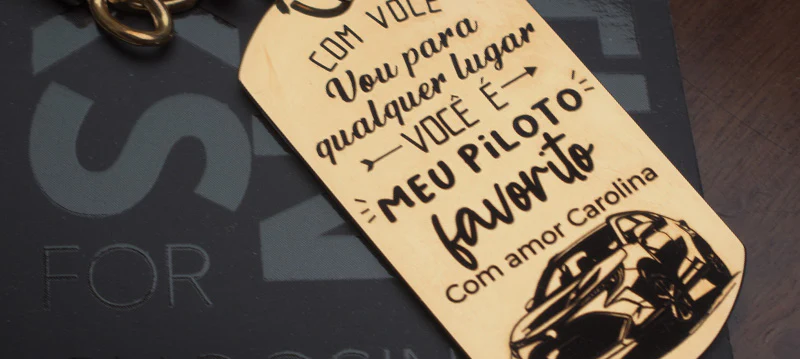 COM VOCÊ
Vou para
qualquer lugar
VOCÊ É
MEU PiLOTO
favorito
Com amor Carolina
FOR